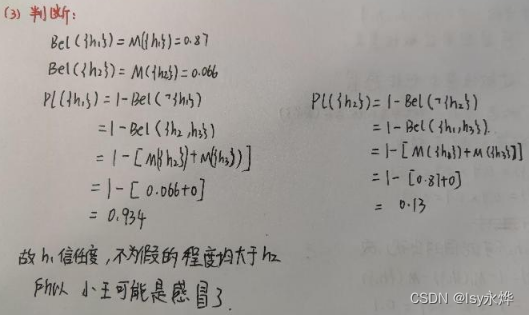 (3) 判断:
Bel({h₁}) = M({h₁}) = 0.87
Bel({h₂}) = M({h₂}) = 0.066
Pl({h₁}) = 1 - Bel(¬{h₁})
= 1 - Bel({h₂,h₃})
= 1 - [M({h₂}) + M({h₃})]
= 1 - [0.066+0]
= 0.934
Pl({h₂}) = 1 - Bel(¬{h₂})
= 1 - Bel({h₁,h₃}).
= 1 - [M({h₁}) + M({h₃})]
= 1 - [0.87+0]
= 0.13
故 h₁ 信任度, 不为假的程度均大于 h₂
所以 小王可能是感冒了.
CSDN @lsy永烨